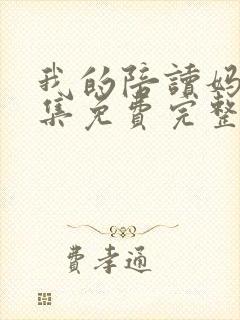 我的陪讀妈
集免費完整
費孝通